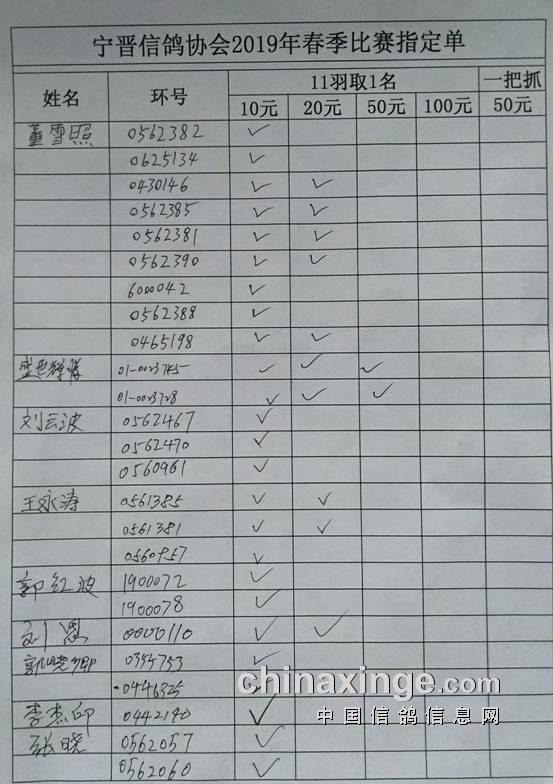 宁晋信鸽协会2019年春季比赛指定单
姓名 环号 11羽取1名 一把抓
10元 20元 50元 100元 50元
董雪照 0562382 ✓
0625134 ✓
0430146 ✓ ✓
0562385 ✓ ✓
0562381 ✓ ✓
0562390 ✓ ✓
6000042 ✓
0562388 ✓
0465198 ✓ ✓
01-0023745 ✓ ✓ ✓
01-0023728 ✓ ✓ ✓
刘云波 0562467 ✓
0562470 ✓
0560961 ✓
王永涛 0561385 ✓ ✓
0561381 ✓ ✓
0560857 ✓
郭红波 1900072 ✓
1900078 ✓
0000110 ✓ ✓
0354753 ✓
0446325 ✓
0442190 ✓
张晓 0562057 ✓
0562060 ✓
chinaxinge.com
中国信鸽信息网